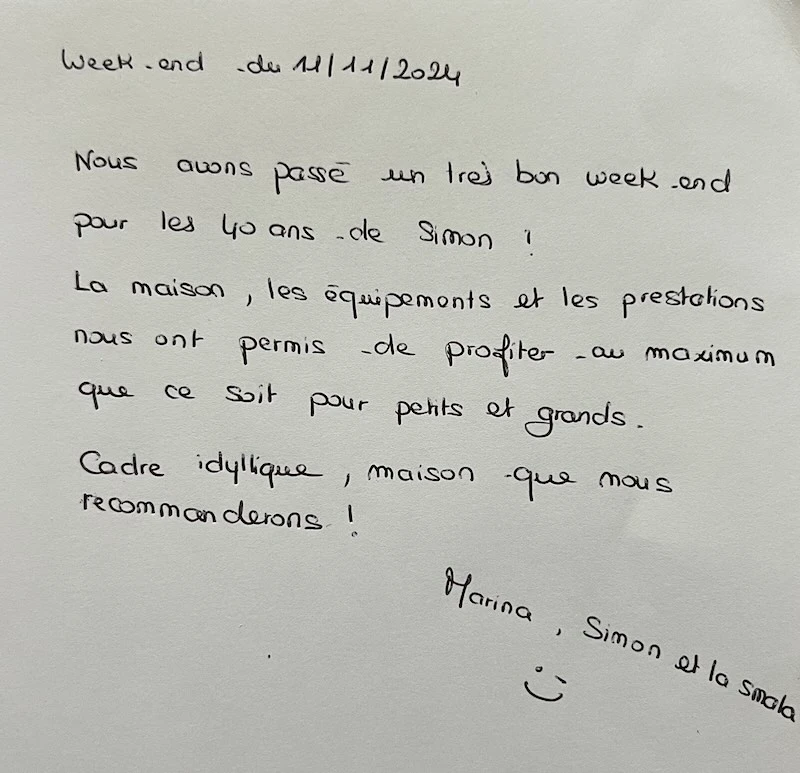 Week-end du 11/11/2024
Nous avons passé un très bon week-end
pour les 40 ans de Simon !
La maison, les équipements et les prestations
nous ont permis de profiter au maximum
que ce soit pour petits et grands.
Cadre idyllique, maison que nous
recommanderons !
Marina, Simon et la smala